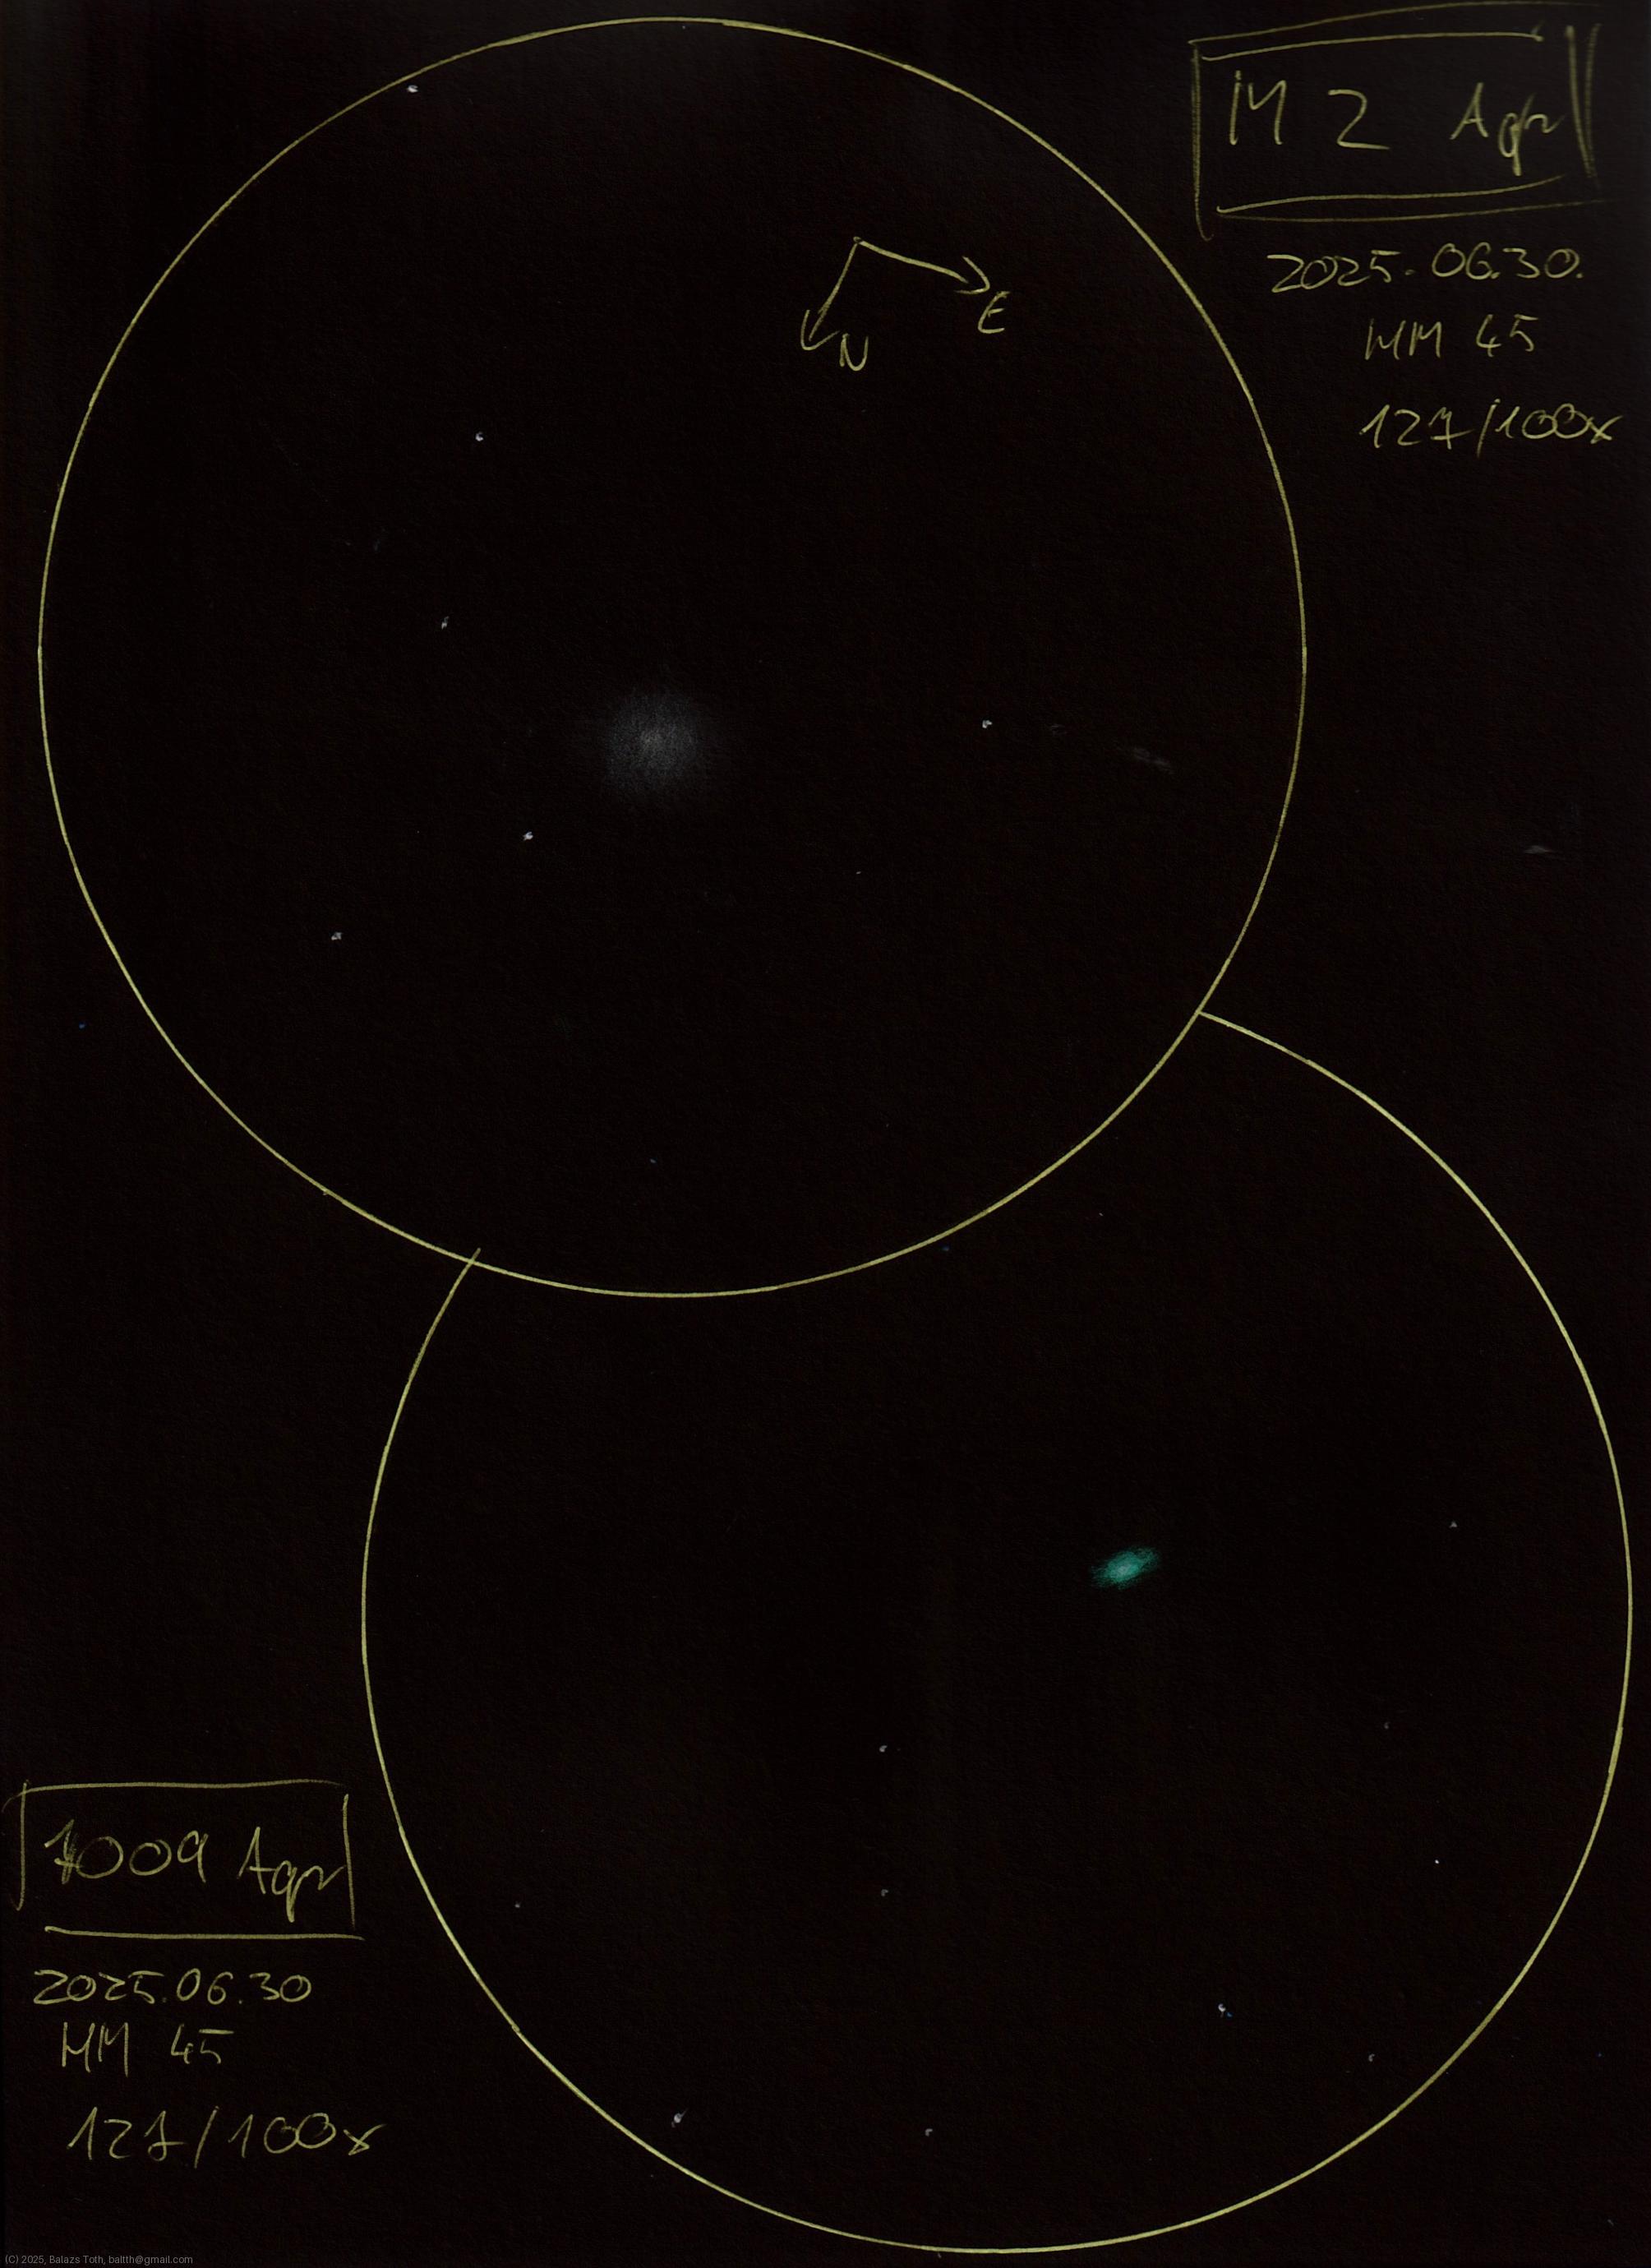 M 2 Aqr
E
N
2025.06.30.
MM 45
127/100x
7009 Aqr
2025.06.30
MM 45
127/100x
(C) 2025, Balazs Toth, baltth@gmail.com